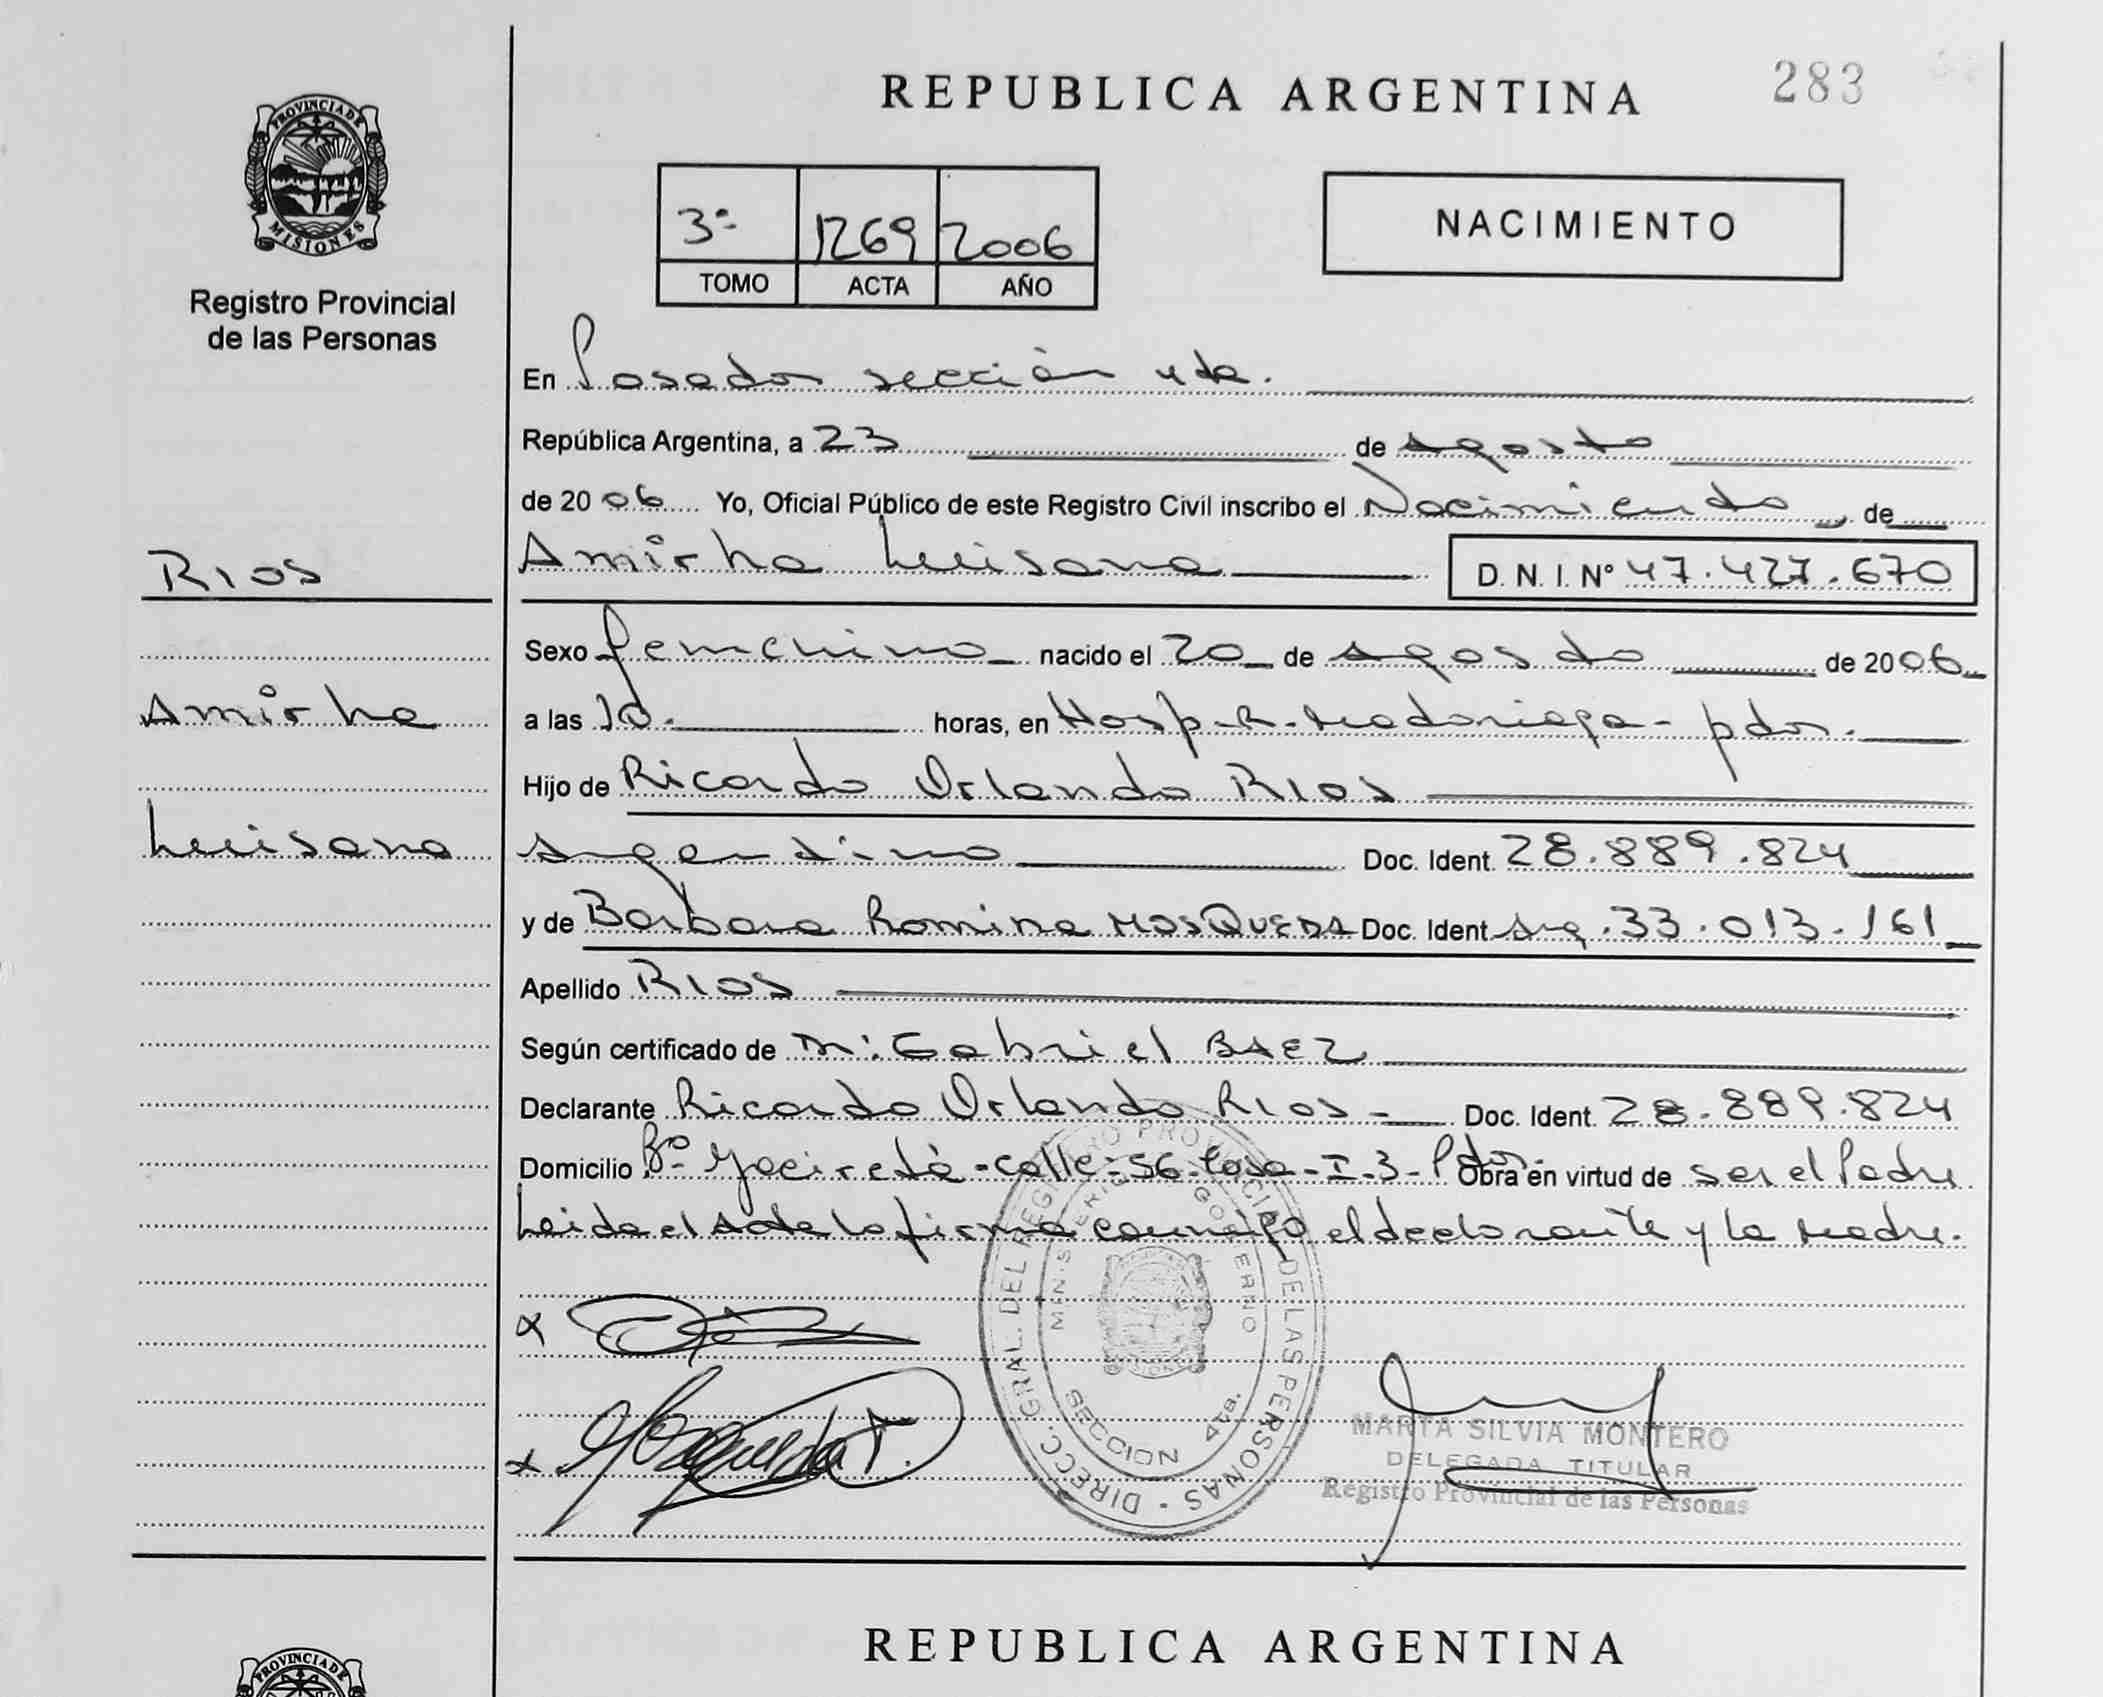 REPUBLICA ARGENTINA
283
PROVINCIA DE MISIONES
Registro Provincial
de las Personas
3º 1269 2006
TOMO ACTA AÑO
NACIMIENTO
En Posadas sección 4ta.
República Argentina, a 23 de agosto
de 2006 Yo, Oficial Público de este Registro Civil inscribo el Nacimiento de
RIOS
Amirha Luisana
D.N.I. Nº 47.427.670
Sexo femenino nacido el 20 de agosto de 2006
Amirha
a las 10. horas, en Hosp-R-Madariaga-pdas.
Hijo de Ricardo Orlando RIOS
Luisana
Argentino Doc. Ident. 28.889.824
y de Barbara Romina MOSQUEDA Doc. Ident Arg. 33.013.161
Apellido RIOS
Según certificado de Gabriel BAEZ
Declarante Ricardo Orlando RIOS Doc. Ident. 28.889.824
Domicilio Bº Yaciretá-calle-56-Casa-I-3-Pdas. Obra en virtud de ser el Padre
Leida el Acta la firma conmigo el declarante y la Madre.
DIRECC. GRAL. DEL REGISTRO PROVINCIAL DE LAS PERSONAS
MINISTERIO GOBIERNO
SECCION 4ta.
MARTA SILVIA MONTERO
DELEGADA TITULAR
Registro Provincial de las Personas
REPUBLICA ARGENTINA
PROVINCIA DE